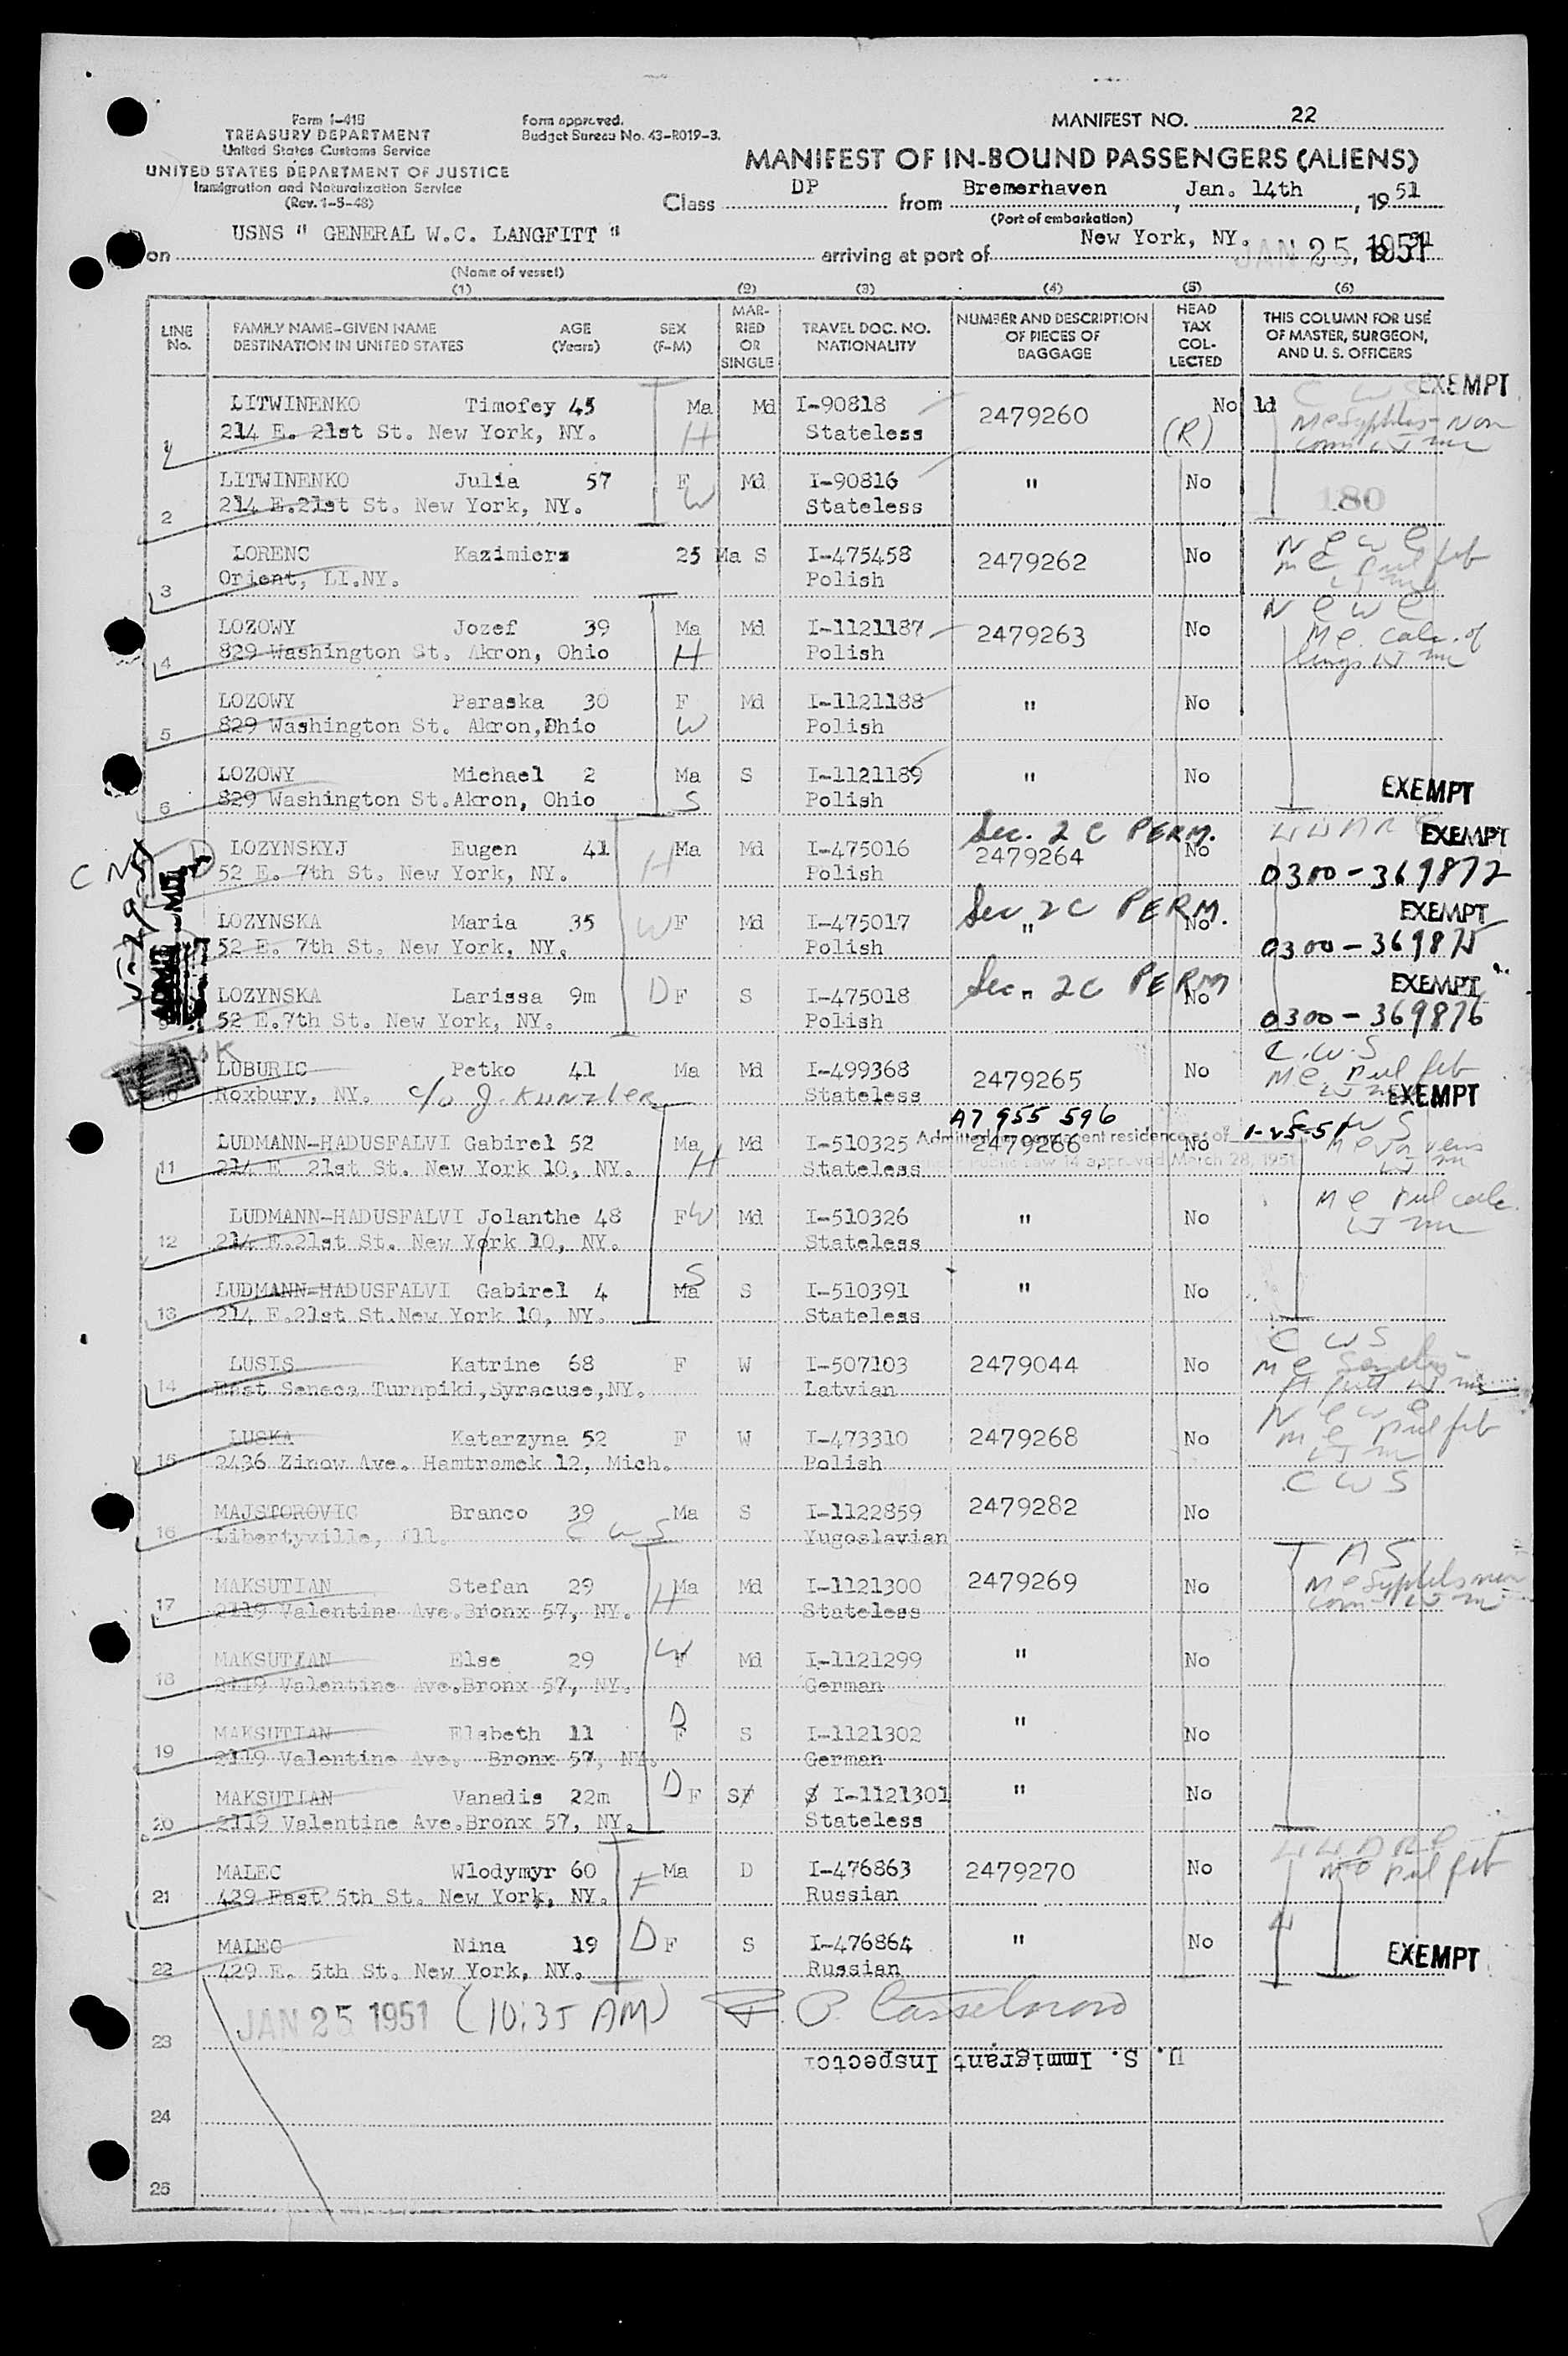 Form I-418
TREASURY DEPARTMENT
United States Customs Service
UNITED STATES DEPARTMENT OF JUSTICE
Immigration and Naturalization Service
(Rev. 1-5-48)
Form approved.
Budget Bureau No. 43-R019-3.
MANIFEST NO. 22
MANIFEST OF IN-BOUND PASSENGERS (ALIENS)
Class DP from Bremerhaven, Jan. 14th, 1951
(Port of embarkation)
on USNS " GENERAL W.C. LANGFITT " arriving at port of New York, NY. JAN 25, 1951
(Name of vessel)
(1) (2) (3) (4) (5) (6)
LINE No. FAMILY NAME-GIVEN NAME DESTINATION IN UNITED STATES AGE (Years) SEX (F-M) MARRIED OR SINGLE TRAVEL DOC. NO. NATIONALITY NUMBER AND DESCRIPTION OF PIECES OF BAGGAGE HEAD TAX COLLECTED THIS COLUMN FOR USE OF MASTER, SURGEON, AND U. S. OFFICERS
EXEMPT
LITWINENKO Timofey 45 Ma Md I-90818 2479260 No ld
1 214 E. 21st St. New York, NY. H Stateless (R)
LITWINENKO Julia 57 F Md I-90816 " No
2 214 E.21st St. New York, NY. W Stateless 180
LORENC Kazimierz 25 Ma S I-475458 2479262 No
3 Orient, LI.NY. Polish
LOZOWY Jozef 39 Ma Md I-1121187 2479263 No
4 829 Washington St. Akron, Ohio H Polish
LOZOWY Paraska 30 F Md I-1121188 " No
5 829 Washington St. Akron,Ohio W Polish
LOZOWY Michael 2 Ma S I-1121189 " No
6 829 Washington St.Akron, Ohio S Polish EXEMPT
Sec. 2 C PERM.
LOZYNSKYJ Eugen 41 H Ma Md I-475016 2479264 No EXEMPT
52 E. 7th St. New York, NY. Polish 0300-369872
Sec 2C PERM.
LOZYNSKA Maria 35 W F Md I-475017 " No EXEMPT
52 E. 7th St. New York, NY. Polish 0300-369875
Sec. 2C PERM
LOZYNSKA Larissa 9m D F S I-475018 " No EXEMPT
9 52 E.7th St. New York, NY. Polish 0300-369876
LUBURIC Petko 41 Ma Md I-499368 2479265 No C.W.S
10 Roxbury, NY. c/o J. KUNZLER Stateless EXEMPT
A7 955 596
LUDMANN-HADUSFALVI Gabirel 52 Ma Md I-510325 2479266 No
Admitted permanent residence as of 1-25-51
11 214 E 21st St. New York 10, NY. H Stateless Public Law 14 approved March 28, 1951
LUDMANN-HADUSFALVI Jolanthe 48 F W Md I-510326 " No
12 214 E.21st St. New York 10, NY. Stateless
LUDMANN-HADUSFALVI Gabirel 4 Ma S S I-510391 " No
13 214 E.21st St.New York 10, NY. Stateless
C W S
LUSIS Katrine 68 F W I-507103 2479044 No
14 East Seneca Turnpiki,Syracuse,NY. Latvian
LUSKA Katarzyna 52 F W I-473310 2479268 No
15 2436 Zinow Ave. Hamtramck 12, Mich. Polish
C W S
MAJSTOROVIC Branco 39 Ma S I-1122859 2479282 No
16 Libertyville, Ill. C W S Yugoslavian
MAKSUTIAN Stefan 29 Ma Md I-1121300 2479269 No
17 2119 Valentine Ave.Bronx 57, NY. H Stateless
MAKSUTIAN Else 29 W F Md I-1121299 " No
18 2119 Valentine Ave.Bronx 57, NY. German
MAKSUTIAN Elsbeth 11 D F S I-1121302 " No
19 2119 Valentine Ave. Bronx 57, NY. German
MAKSUTIAN Vanadis 22m D F S I-1121301 " No
20 2119 Valentine Ave.Bronx 57, NY. Stateless
MALEC Wlodymyr 60 F Ma D I-476863 2479270 No
21 429 East 5th St. New York, NY. Russian
MALEC Nina 19 D F S I-476864 " No
22 429 E. 5th St. New York, NY. Russian EXEMPT
JAN 25 1951 (10:35 AM)
23
U. S. Immigrant Inspector
24
25